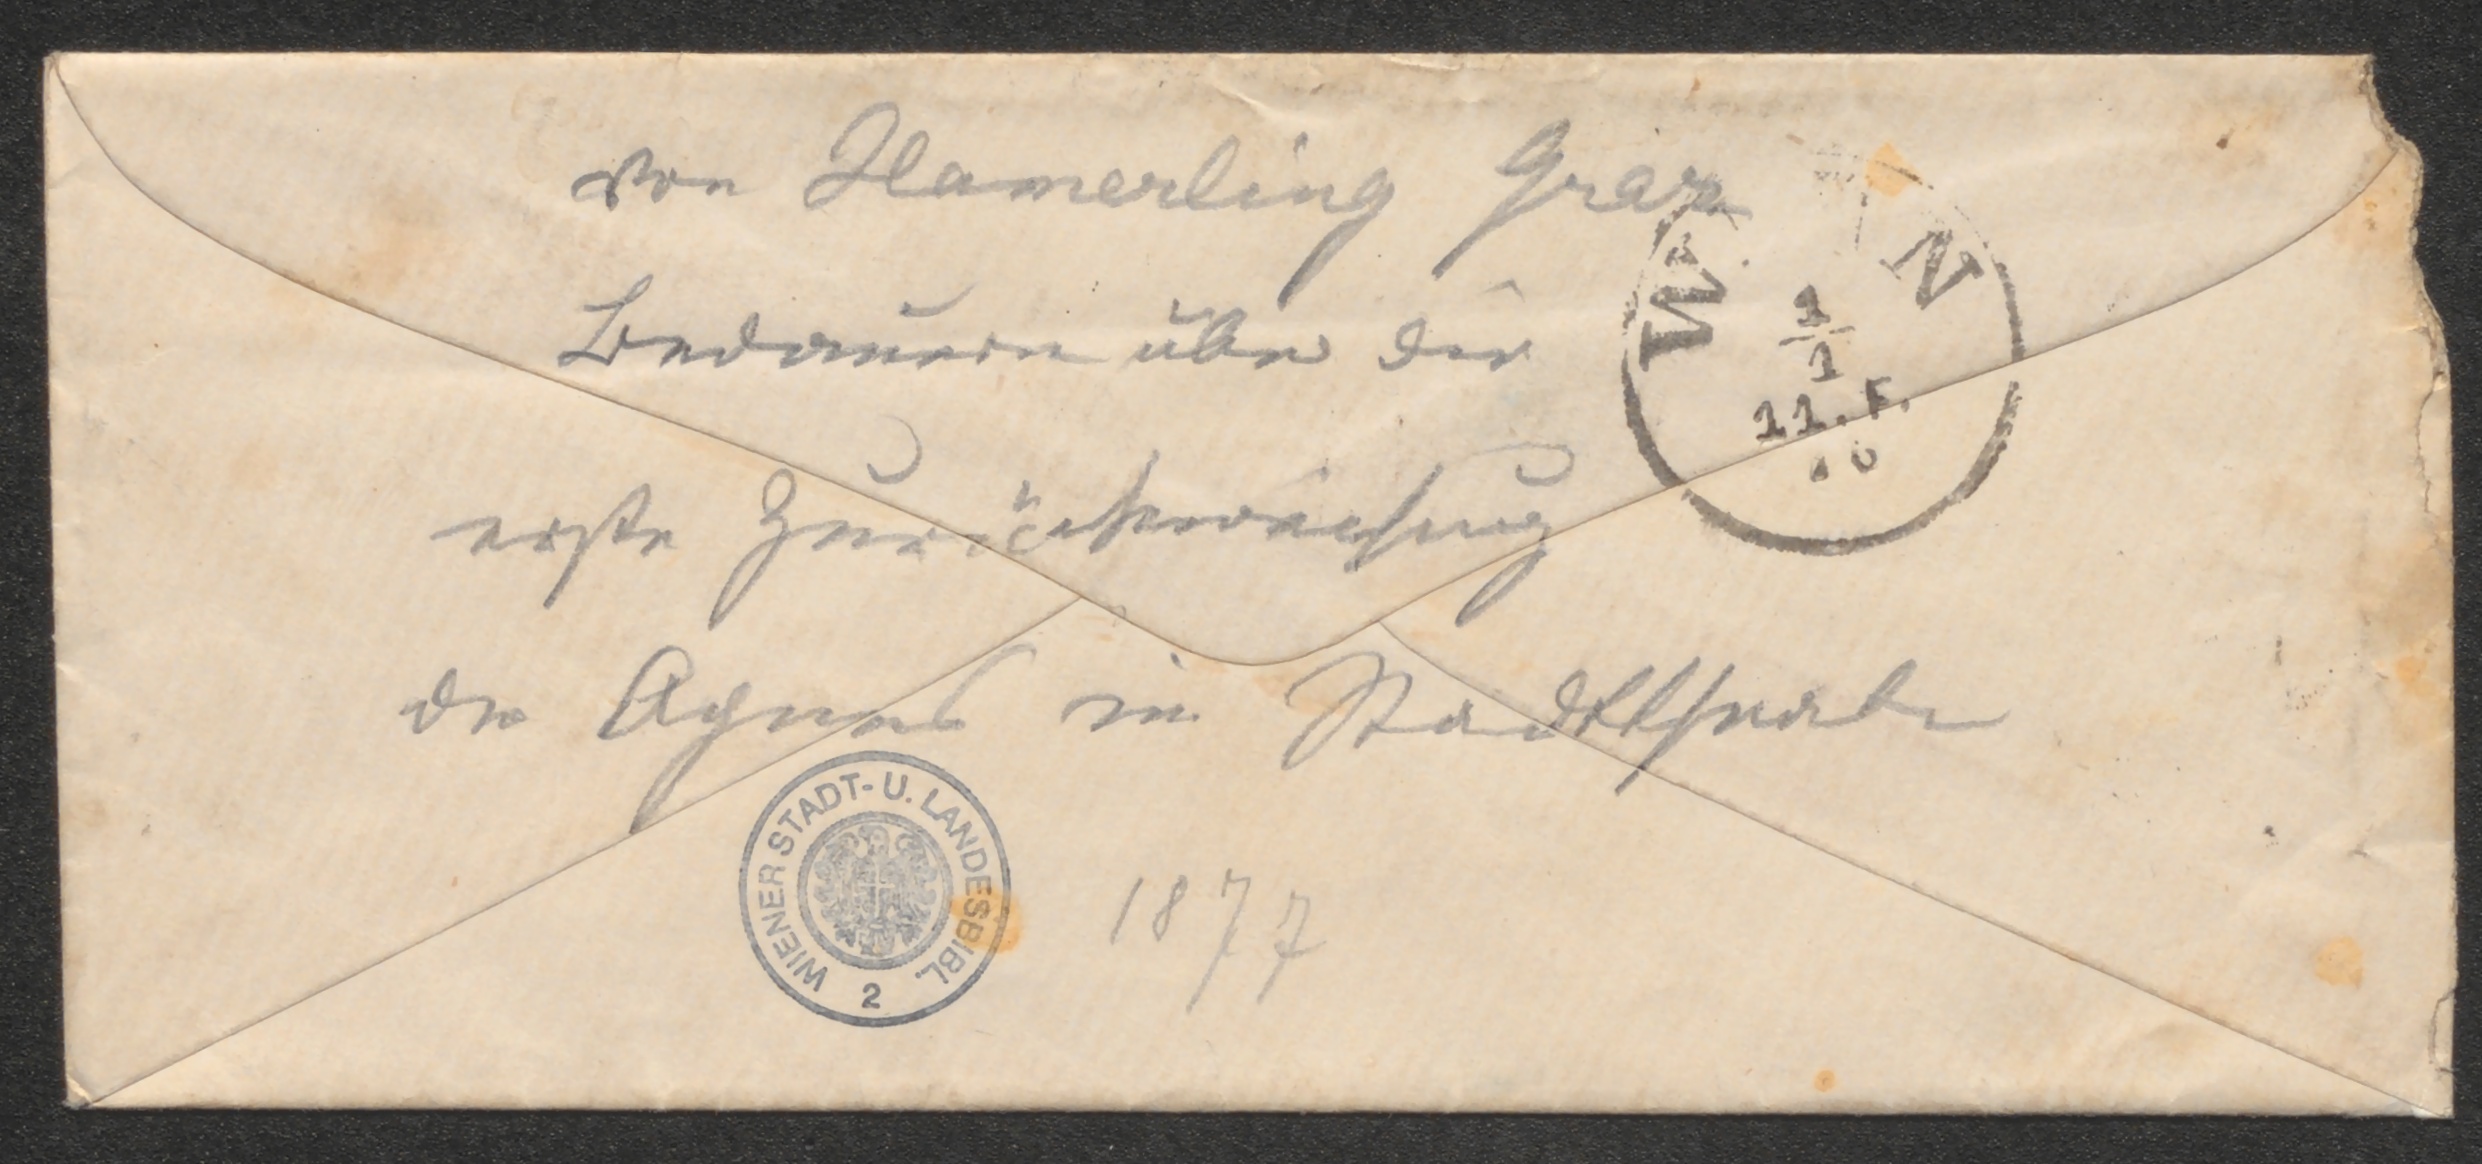 von Hamerling Graz
Bedauern über die
erste Zurückweisung
der Agnes im Stadttheater
W N
1
1
11. F.
WIENER STADT- U. LANDESBIBL.
2
1877